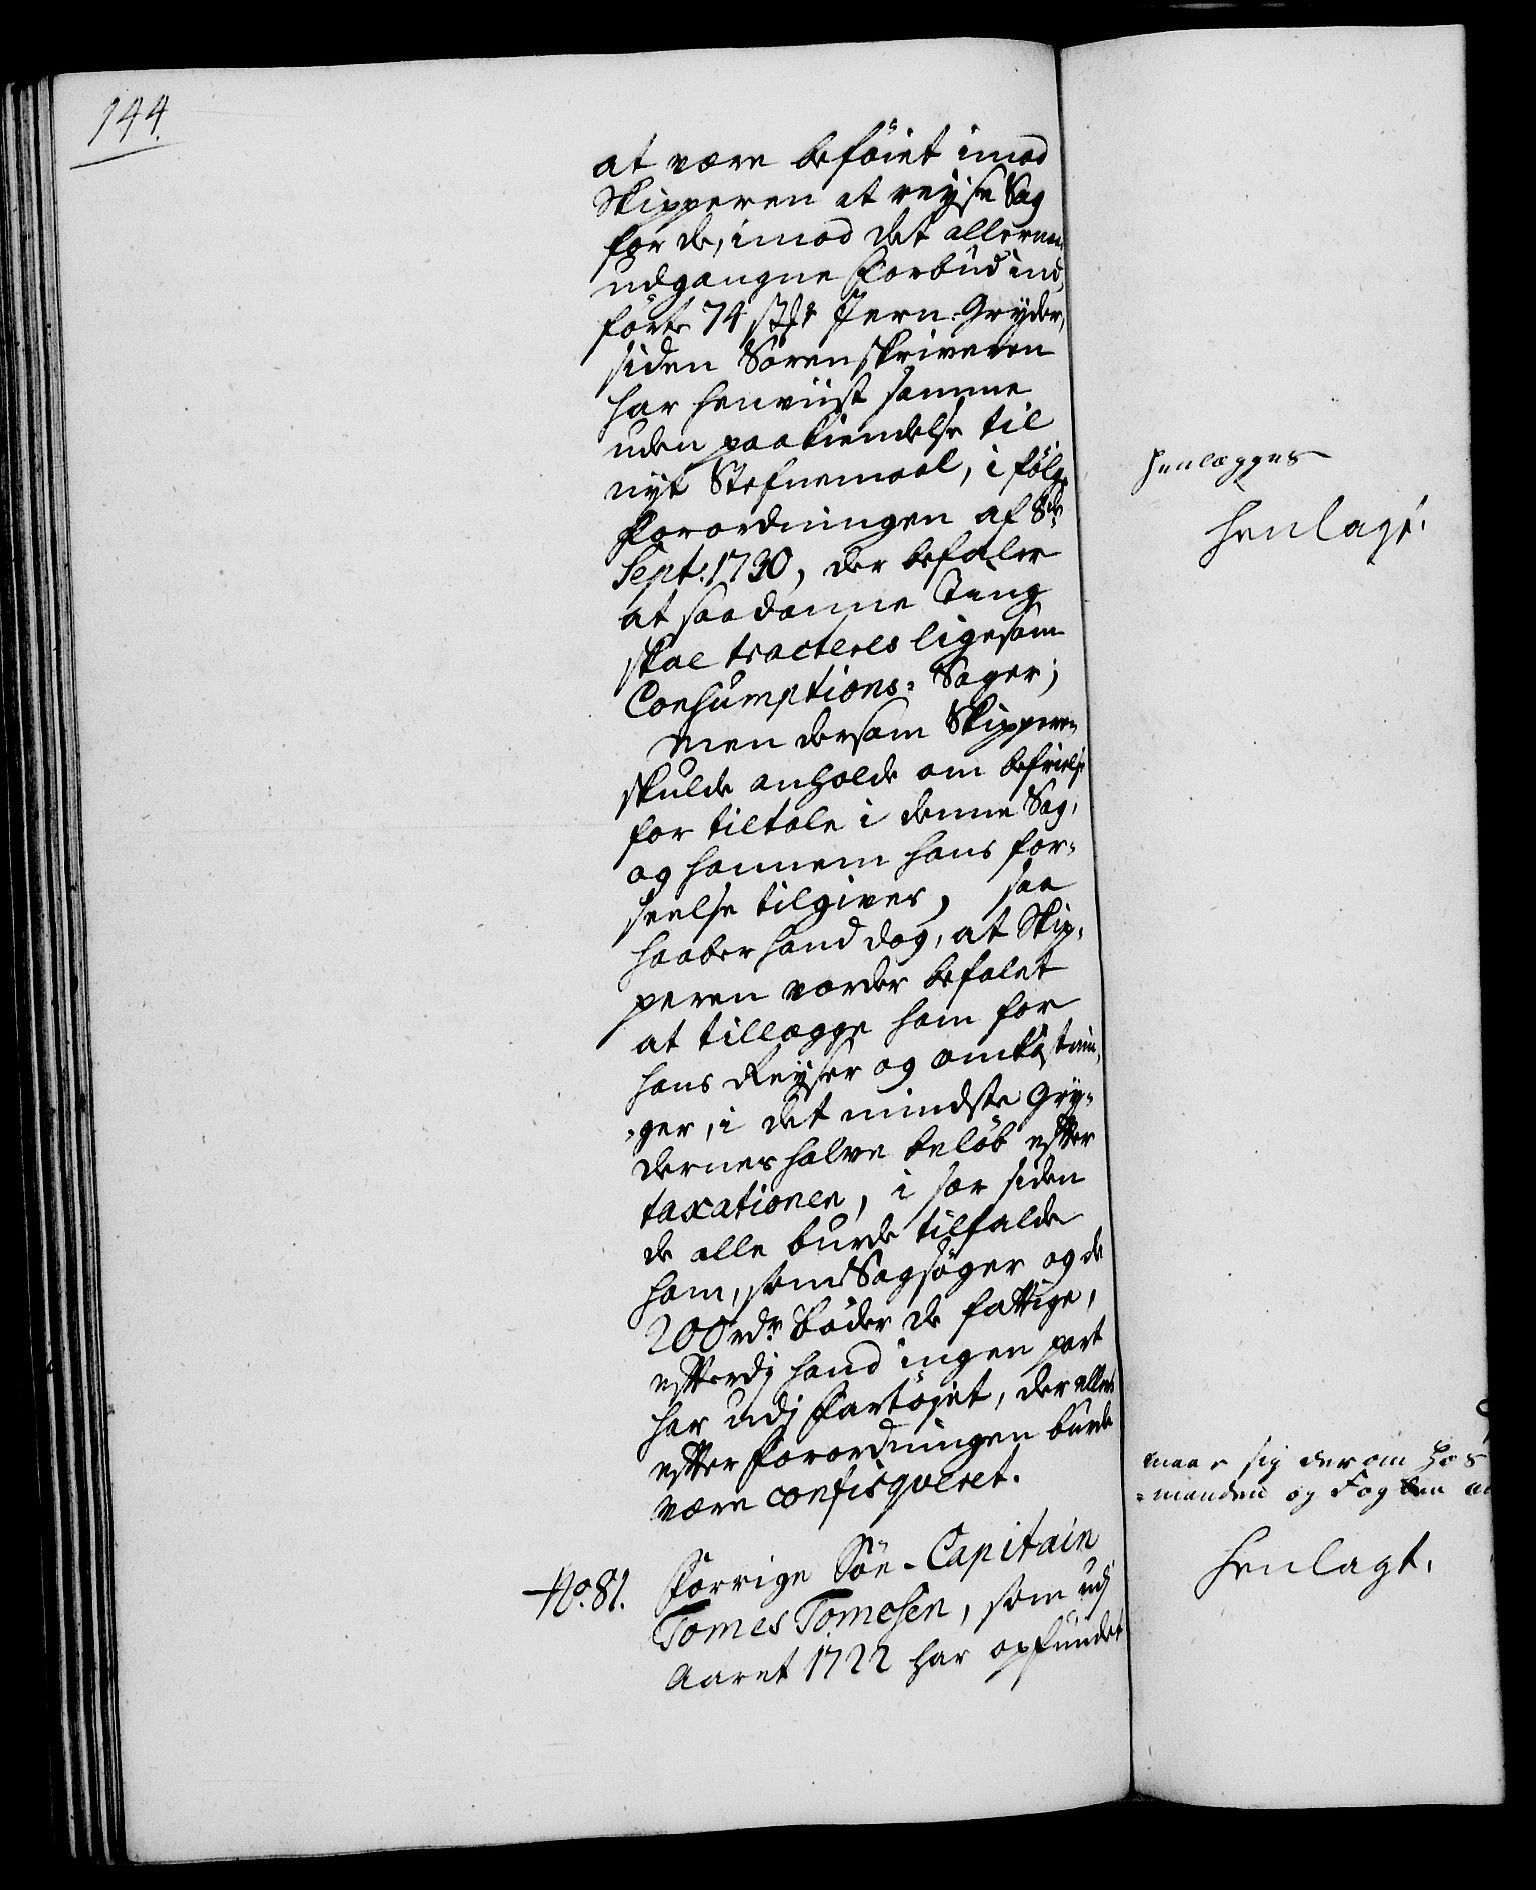 144.
at være beføiet imod
Skipperen at reyse Sag
for de, imod det allernaad:
udgangne Forbud ind,
førte 74 st:r Jern-Gryder,
siden Sorenskriveren
har henviist samme
uden paakiendelse til
nyt Stefnemaal, i følge
Forordningen af 8de
Sept: 1730, der befaler
at saadanne Ting
skal tracteres ligesom
Consumptions-Sager;
men dersom Skipperen
skulde anholde om befrielse
for tiltale i denne Sag,
og hannem hans for-
seelse tilgives, saa
haaber hand dog, at Skip-
peren vorder befalet
at tillægge ham for
hans Reyser og omkostnin-
-ger, i det mindste Gry-
dernes halve beløb efter
taxationen, i sær siden
de alle burde tilfalde
ham, som Sagsøger og de
200 rdr. bøder de fattige,
efterdj hand ingen part
har udj Fartøjet, der ellers
efter Forordningen burde
være confisqveret.
No. 81. Forrige Söe-Capitain
Tomes Tomesen, som udj
Aaret 1722 har opfundet
henlægges
henlagt.
maae sig derom hos
-manden og Fogden
henlagt.